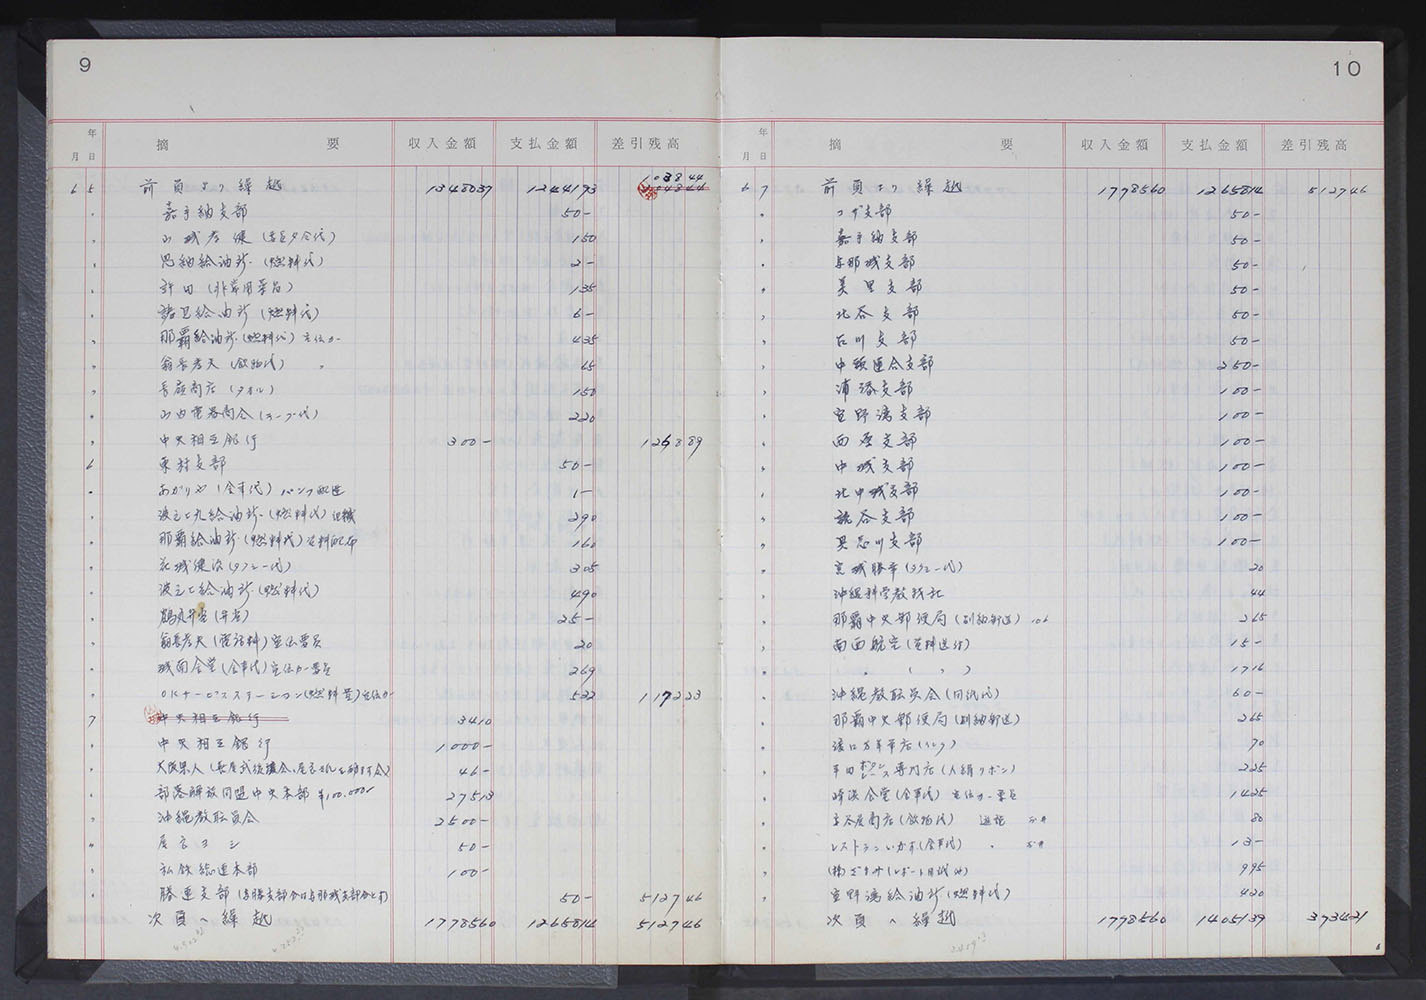 9
年 月 日 摘 要 収入金額 支払金額 差引残高
6 5 前頁より繰越 1348037 1244193 103844
〃 嘉手納支部 50-
〃 山城孝健 (夕食代) 150
〃 恩納給油所 (燃料代) 2-
〃 許田 (非常用薬品) 135
〃 諸見給油所 (燃料代) 6-
〃 那覇給油所 (燃料代) 宣伝カー 435
〃 翁長孝夫 (飲物代) 〃 65
〃 長嶺商店 (タオル) 150
〃 山内電器商会 (テープ代) 220
〃 中央相互銀行 300- 126889
6 東村支部 50-
〃 あがりや (食事代) パンフ配達 1-
〃 波之上丸給油所 (燃料代) 組織 290
〃 那覇給油所 (燃料代) 資料配布 160
〃 花城健次 (タクシー代) 305
〃 波之上給油所 (燃料代) 490
〃 鶴丸弁当 (弁当) 25-
〃 翁長孝夫 (電話料) 宣伝要員 20
〃 城南食堂 (食事代) 宣伝カー要員 269
〃 OKサービスステーション (燃料費) 宣伝カー 532 117223
7 中央相互銀行 3410
〃 中央相互銀行 1000-
〃 大阪県人 46-
〃 部落解放同盟中央本部 ¥100.000 27513
〃 沖縄教職員会 2500-
〃 屋宮ヨシ 50-
〃 私鉄総連本部 100-
〃 勝連支部 50- 512746
次頁へ繰越 1778560 1265814 512746
10
年 月 日 摘 要 収入金額 支払金額 差引残高
6 7 前頁より繰越 1778560 1265814 512746
〃 コザ支部 50-
〃 嘉手納支部 50-
〃 与那城支部 50-
〃 美里支部 50-
〃 北谷支部 50-
〃 石川支部 50-
〃 中頭連合支部 250-
〃 浦添支部 100-
〃 宜野湾支部 100-
〃 西原支部 100-
〃 中城支部 100-
〃 北中城支部 100-
〃 読谷支部 100-
〃 具志川支部 100-
〃 宮城勝幸 (タクシー代) 20
〃 沖縄科学教材社 44
〃 那覇中央郵便局 (別納郵送) 265
〃 南西航空 (資料送付) 15-
〃 〃 ( 〃 〃 ) 1716
〃 沖縄教職員会 (用紙代) 60-
〃 那覇中央郵便局 (別納郵送) 265
〃 渡口万年筆店 (インク) 70
〃 平田ボタンレース専門店 (人絹リボン) 225
〃 食堂 (食事代) 宣伝カー要員 1425
〃 商店 (飲物代) 80
〃 レストランいかす (食事代) 〃 13-
〃 995
〃 宜野湾給油所 (燃料代) 420
次頁へ繰越 1778560 1405139 373421